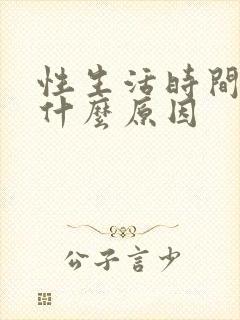 性生活時間
什麼原因
公子言少